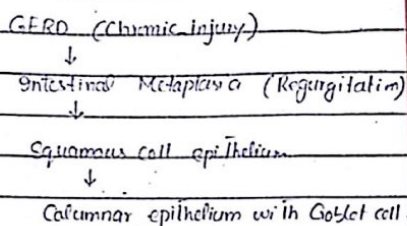 GERD (Chronic injury)
↓
Intestinal Metaplasia (Regurgitation)
↓
Squamous cell epithelium
↓
Columnar epithelium with Goblet cell